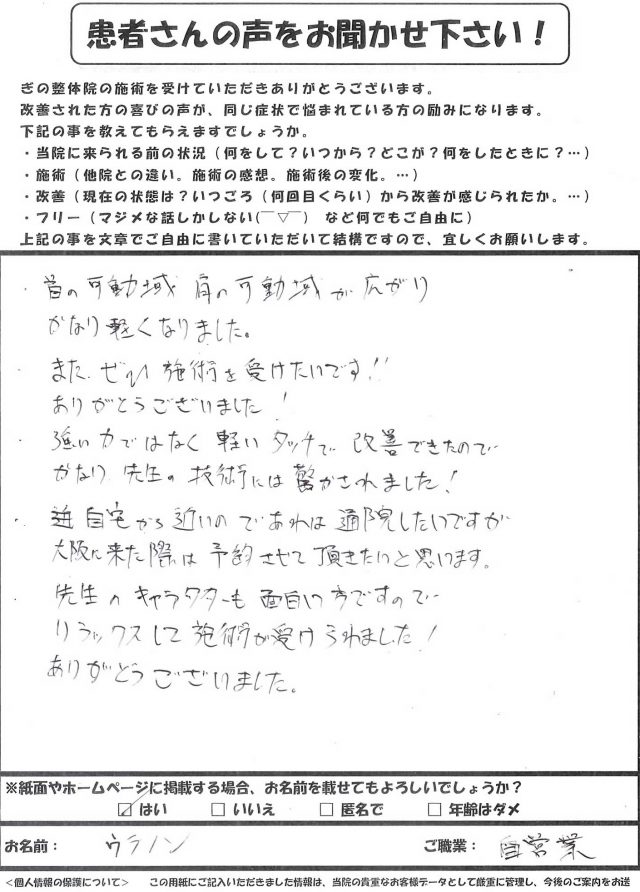 患者さんの声をお聞かせ下さい！
ぎの整体院の施術を受けていただきありがとうございます。
改善された方の喜びの声が、同じ症状で悩まれている方の励みになります。
下記の事を教えてもらえますでしょうか。
・当院に来られる前の状況（何をして？いつから？どこが？何をしたときに？…）
・施術（他院との違い。施術の感想。施術後の変化。…）
・改善（現在の状態は？いつごろ（何回目くらい）から改善が感じられたか。…）
・フリー（マジメな話しかしない(￣▽￣)　など何でもご自由に）
上記の事を文章でご自由に書いていただいて結構ですので、宜しくお願いします。
・首の可動域 肩の可動域が広がり
かなり軽くなりました。
また、ぜひ施術を受けたいです！！
ありがとうございました！
・強い力ではなく軽いタッチで改善できたので
かなり先生の技術には驚かされました！
・自宅から近いのであれば通院したいですが
大阪に来た際は予約させて頂きたいと思います。
先生のキャラクターも面白い方ですので
リラックスして施術が受けられました！
ありがとうございました。
※紙面やホームページに掲載する場合、お名前を載せてもよろしいでしょうか？
☑ はい　□ いいえ　□ 匿名で　□ 年齢はダメ
お名前： ウラノン　ご職業： 自営業
<個人情報の保護について>　この用紙にご記入いただきました情報は、当院の貴重なお客様データとして厳重に管理し、今後のご案内をお送